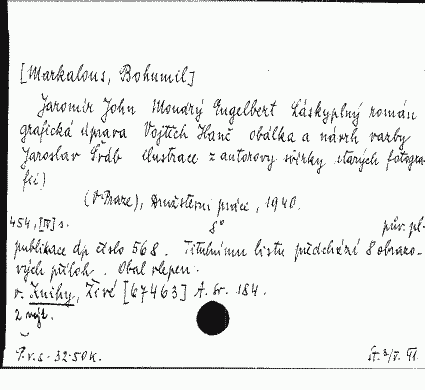 [Markalous, Bohumil]
Jaromír John Moudrý Engelbert Láskyplný román
grafická úprava Vojtěch Hanč obálka a návrh vazby
Jaroslav Šváb ilustrace z autorovy sbírky starých fotogra-
fií)
(V Praze), Družstevní práce, 1940.
454, [IV] s. 8° pův. pl.
publikace dp číslo 568. Titulnímu listu předchází 8 obrazo-
vých příloh. Obal vlepen.
v. Knihy, Živé [67463] A. sv. 184.
2 výt.
P.v.s - 32·50 K.